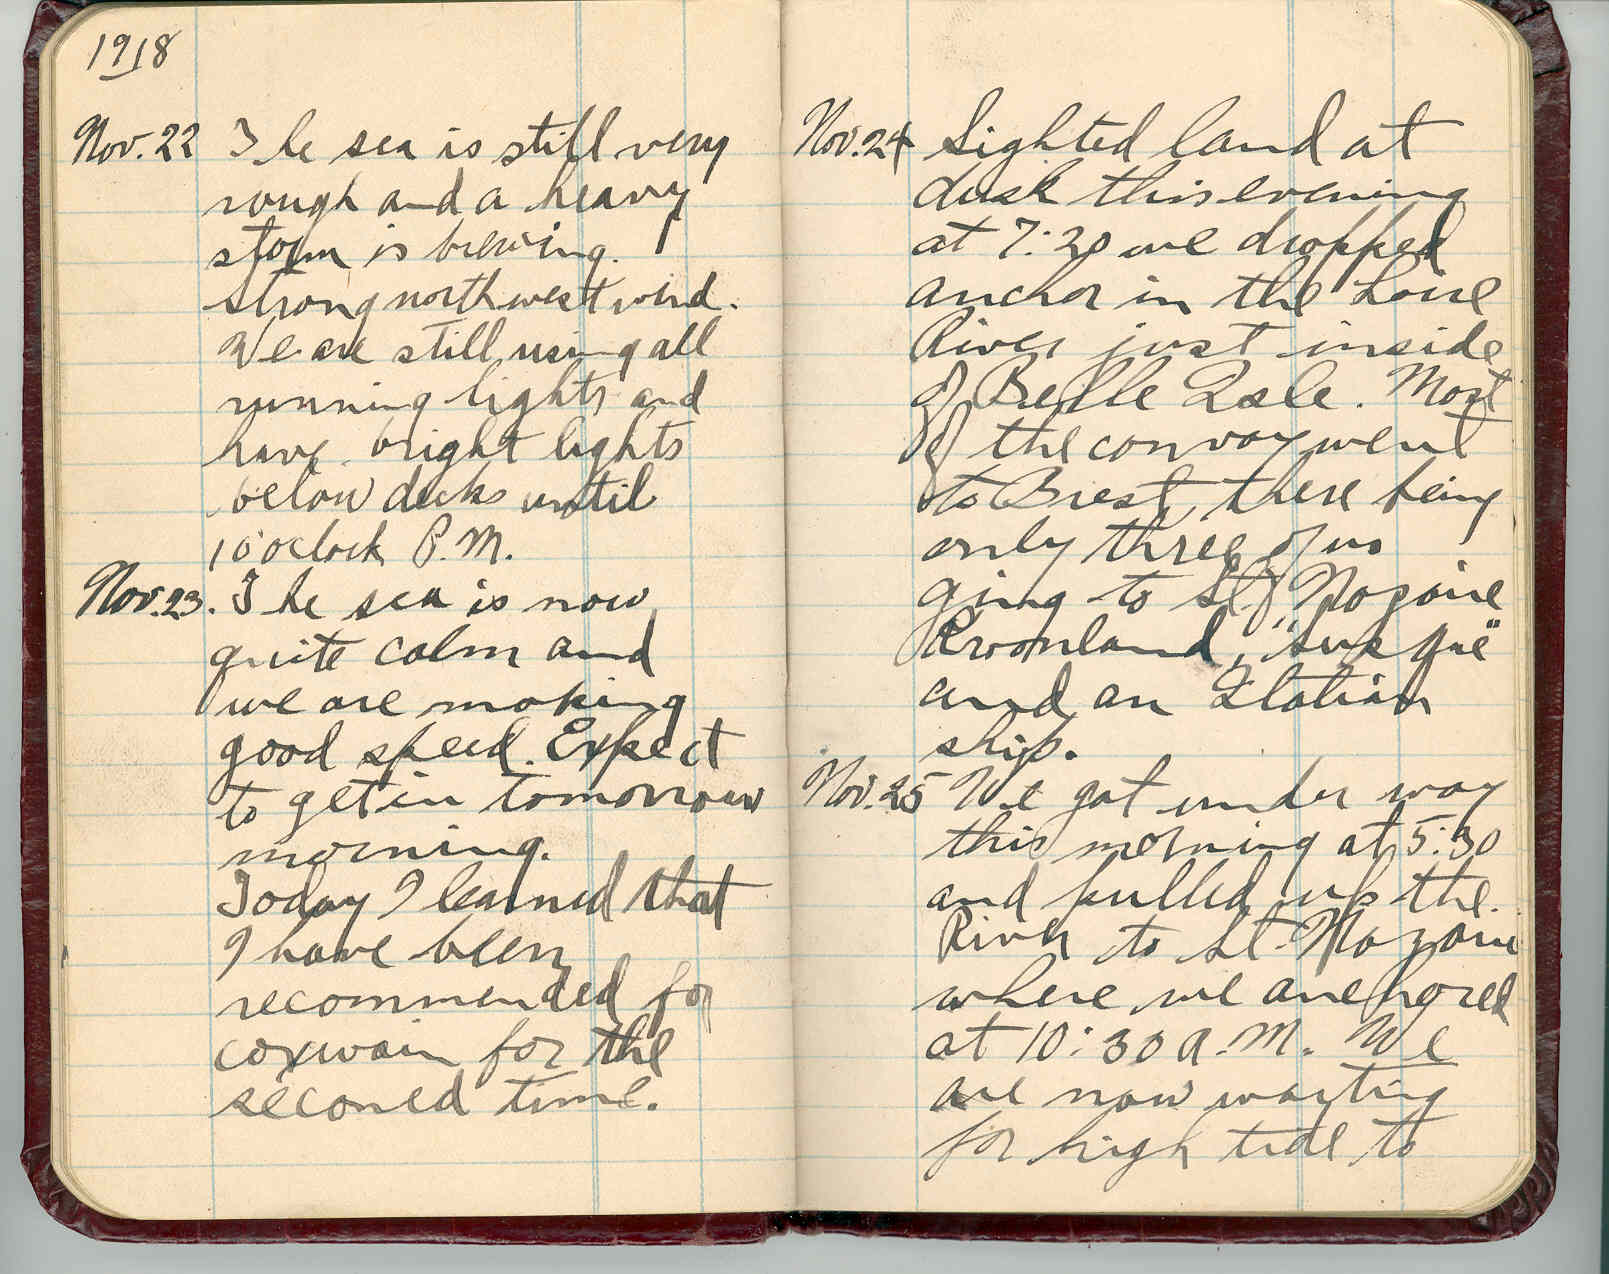 1918
Nov. 22 The sea is still very
rough and a heavy
storm is brewing.
strong north west wind.
We are still using all
running lights and
have bright lights
below decks until
10 oclock P.M.
Nov. 23. The sea is now
quite calm and
we are making
good speed. Expect
to get in tomorrow
morning.
Today I learned that
I have been
recommended for
coxwain for the
seconed time.
Nov. 24 Sighted land at
dusk this evening
at 7:30 we dropped
anchor in the Loire
River just inside
of Beille Isle. Most
of the convoy went
to Brest, there being
only three of us
going to St. Nozaire
Kroonland, "Susque"
and an Italian
ship.
Nov. 25 We got under way
this morning at 5:30
and pulled up the
River to St. Nazaire
where we anchored
at 10:30 A.M. We
are now waiting
for high tide to